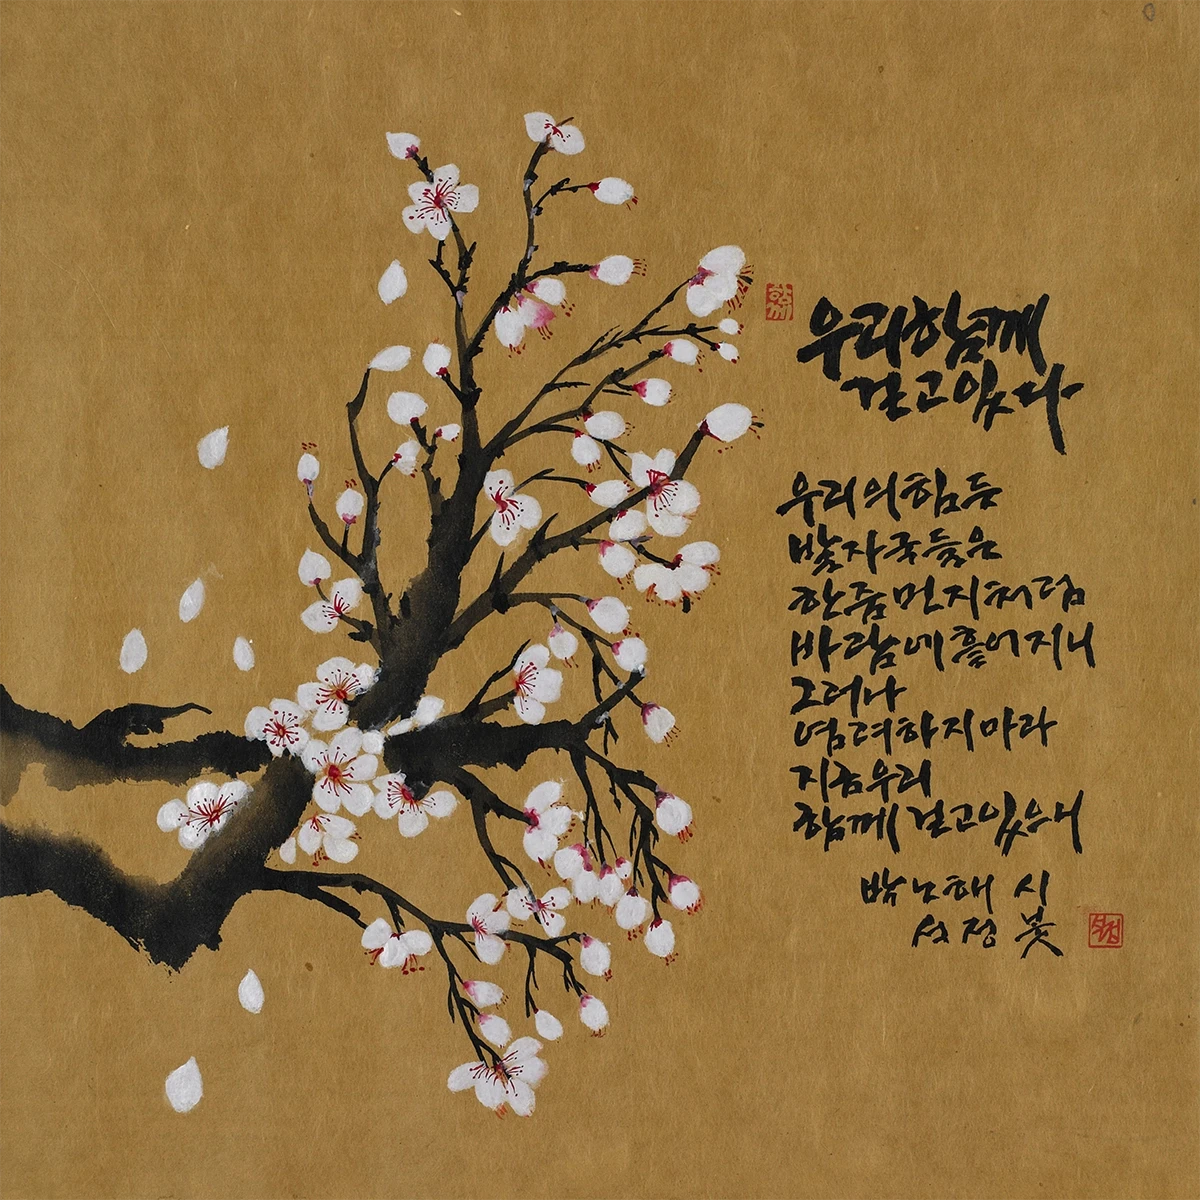 함께
우리 함께
걷고 있다
우리의 힘든
발자국들은
한줌 먼지처럼
바람에 흩어지니
그러나
염려하지 마라
지금 우리
함께 걷고 있으니
박노해 시
석정 붓
석정